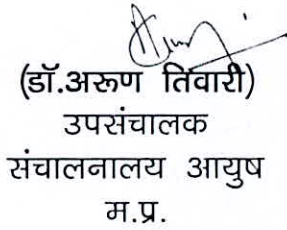 (डॉ.अरूण तिवारी)
उपसंचालक
संचालनालय आयुष
म.प्र.